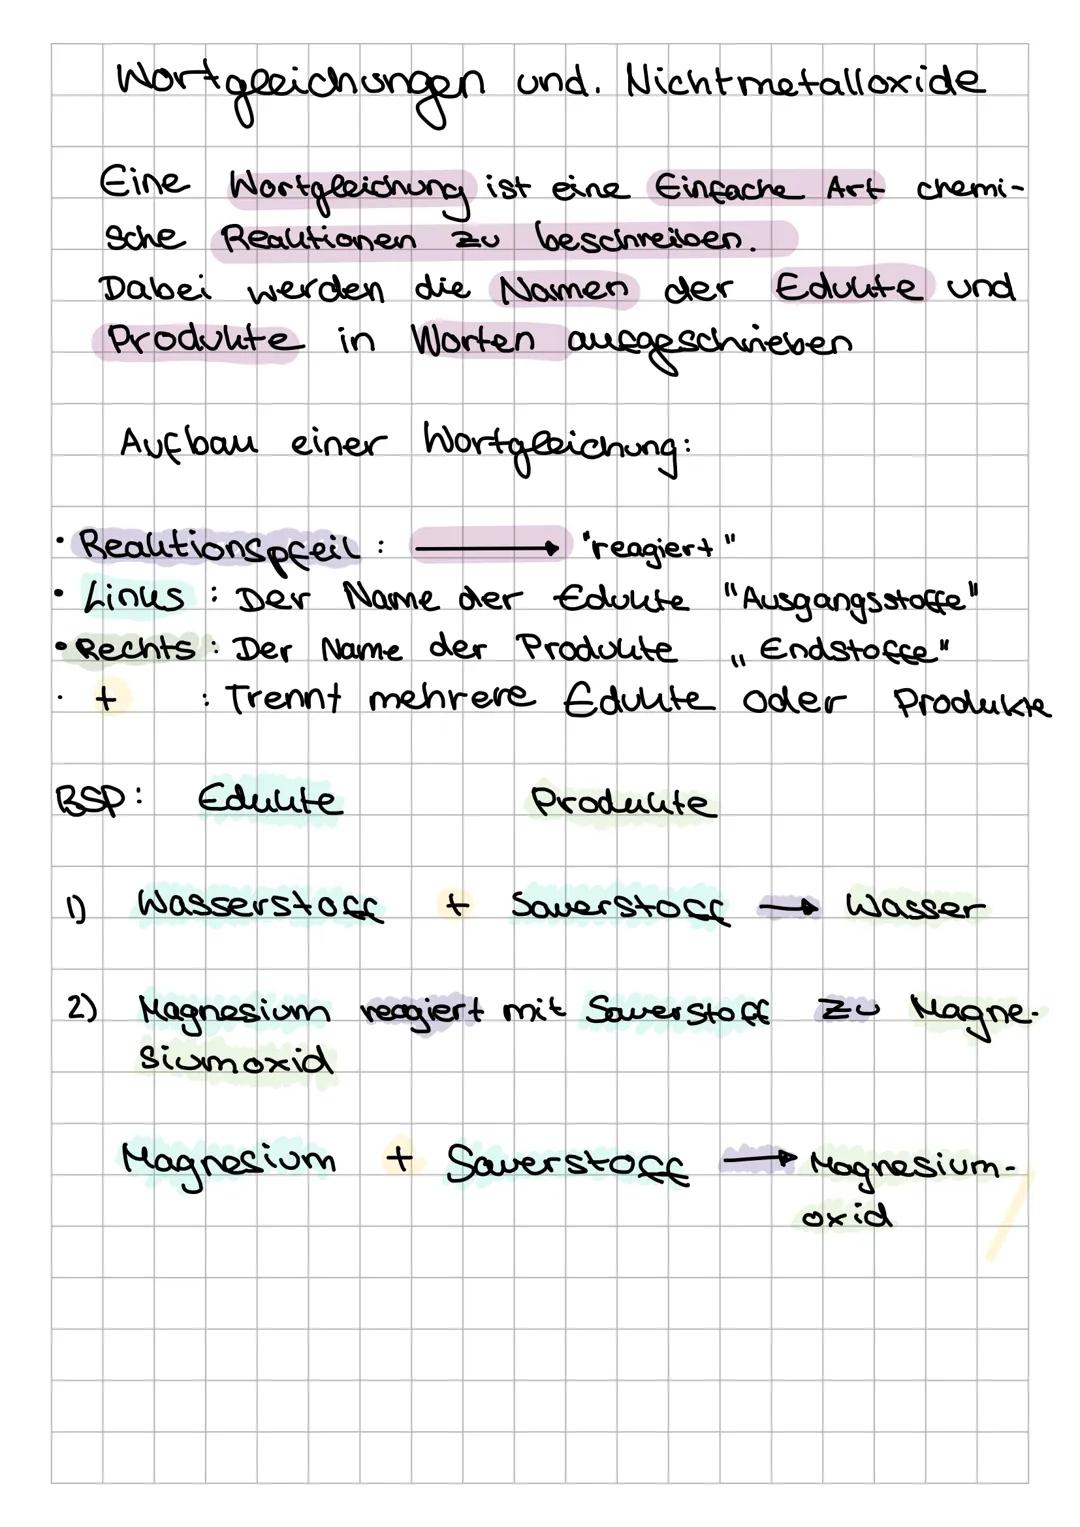 Wortgleichungen und. Nichtmetalloxide
Eine Wortgleichung ist eine Einfache Art chemi-
sche Reaktionen zu beschreiben.
Dabei werden die Namen der Edukte und
Produkte in Worten ausgeschrieben
Aufbau einer Wortgleichung:
· Reaktionspfeil : → "reagiert"
· Links : Der Name der Edukte "Ausgangsstoffe"
· Rechts : Der Name der Produkte „Endstoffe"
· + : Trennt mehrere Edukte oder Produkte
BSP: Edukte Produkte
1) Wasserstoff + Sauerstoff → Wasser
2) Magnesium reagiert mit Sauerstoff zu Magne-
siumoxid
Magnesium + Sauerstoff → Magnesium-
oxid